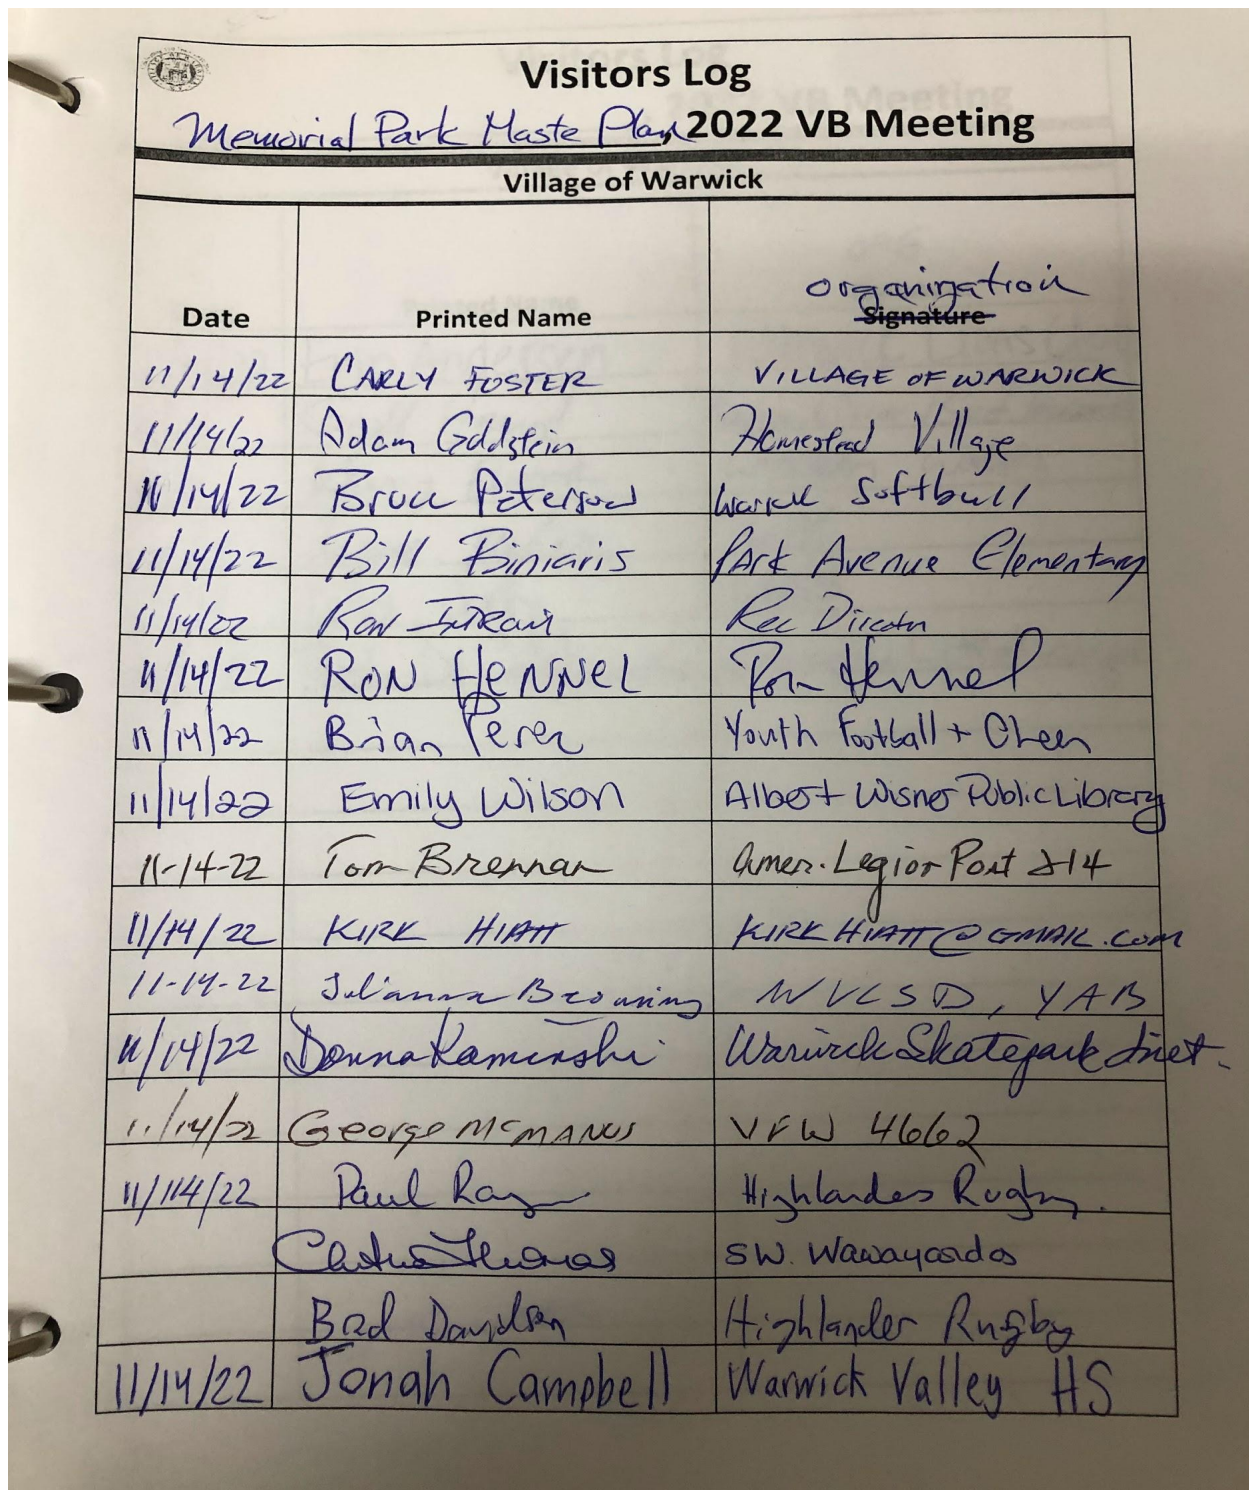 Visitors Log
Memorial Park Maste Plan, 2022 VB Meeting
Village of Warwick
Date Printed Name organization Signature
11/14/22 CARLY FOSTER VILLAGE OF WARWICK
11/14/22 Adam Goldstein Homestead Village
11/14/22 Bruce Peterson Softball
11/14/22 Bill Biniaris Park Avenue Elementary
11/14/22 Ron Rec Director
11/14/22 RON HENNEL Ron Hennel
11/14/22 Brian Perez Youth Football + Cheer
11/14/22 Emily Wilson Albert Wisner Public Library
11-14-22 Tom Brennan Amer. Legion Post 214
11/14/22 KIRK HIATT KIRKHIATT@GMAIL.COM
11-14-22 Julianna Browning WVCSD, YAB
11/14/22 Donna Kaminski Warwick Skatepark
11/14/22 George McMANUS VFW 4662
11/114/22 Paul Highlandes Rugby.
Thomas SW. Wawayandas
Brad Davidson Highlander Rugby
11/14/22 Jonah Campbell Warwick Valley HS